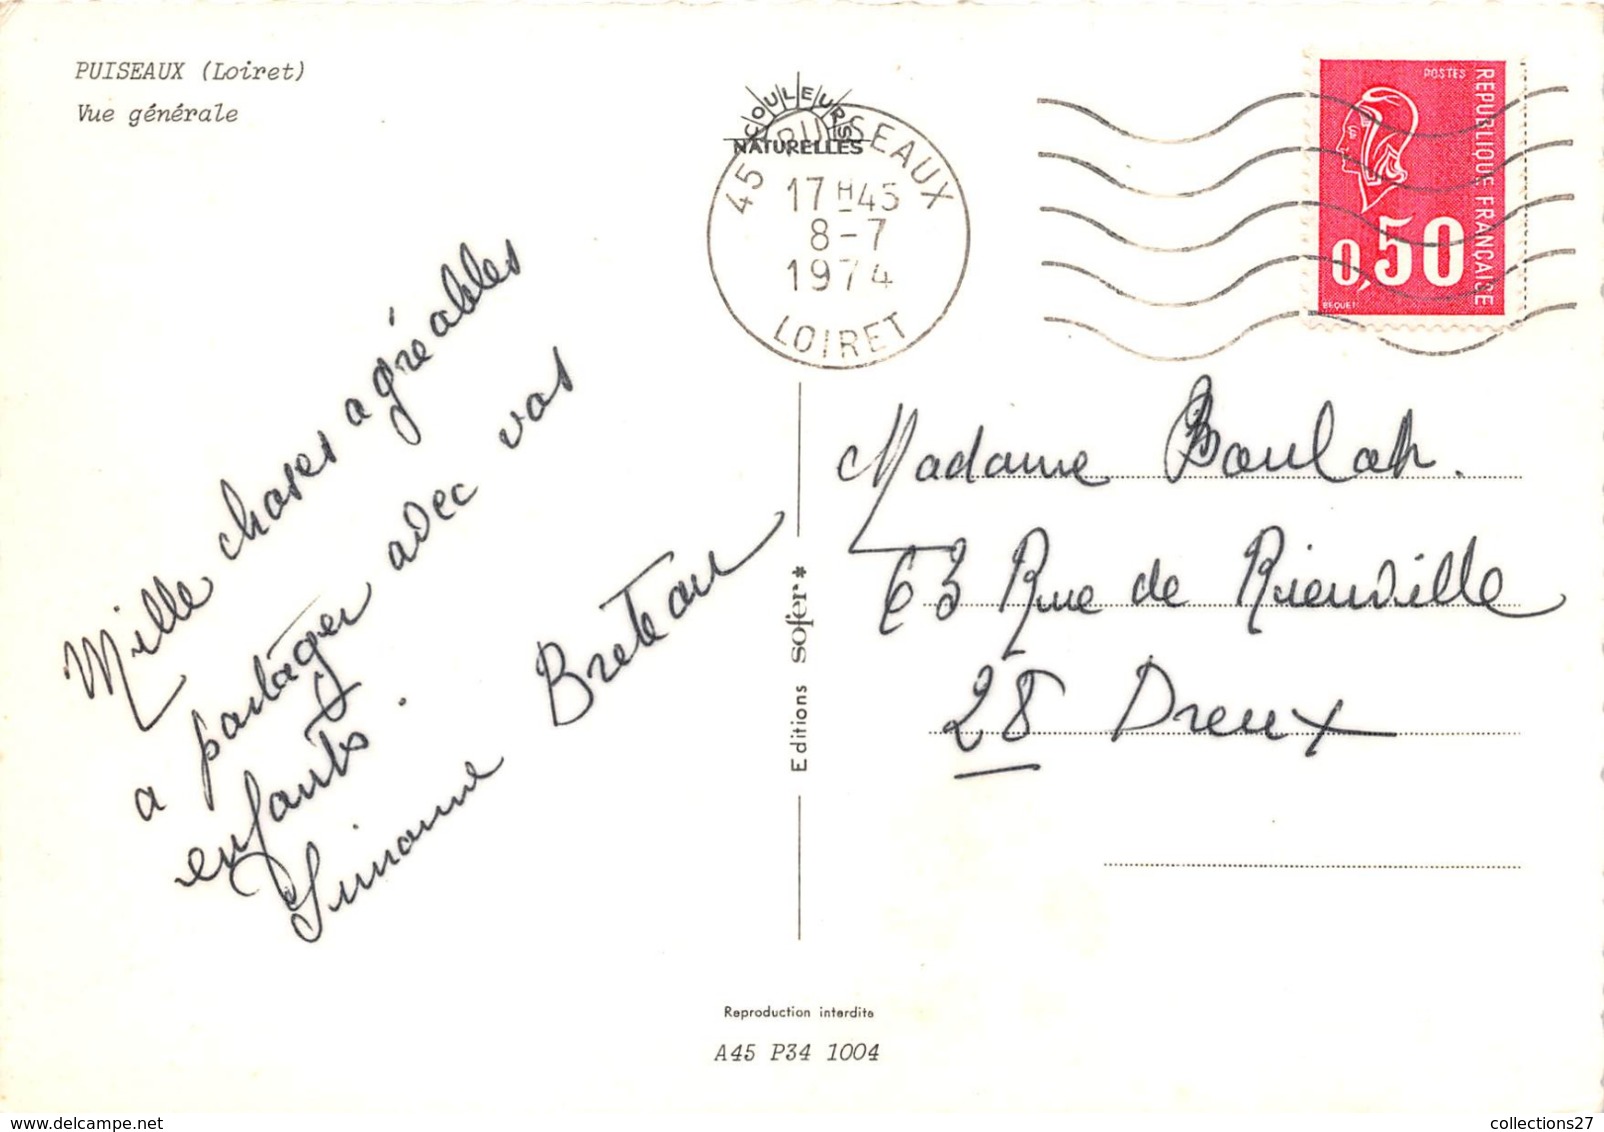 PUISEAUX (Loiret)
Vue générale
COULEURS
NATURELLES
45 PUISEAUX
17 H 45
8-7
1974
LOIRET
POSTES
REPUBLIQUE FRANÇAISE
0,50
BEQUET
Mille choses agréables
a partager avec vos
enfants.
Simonne Breteau
Madame Boulak.
63 Rue de Rieuville
28 Dreux
Editions sofer*
Reproduction interdite
A45 P34 1004
collections27